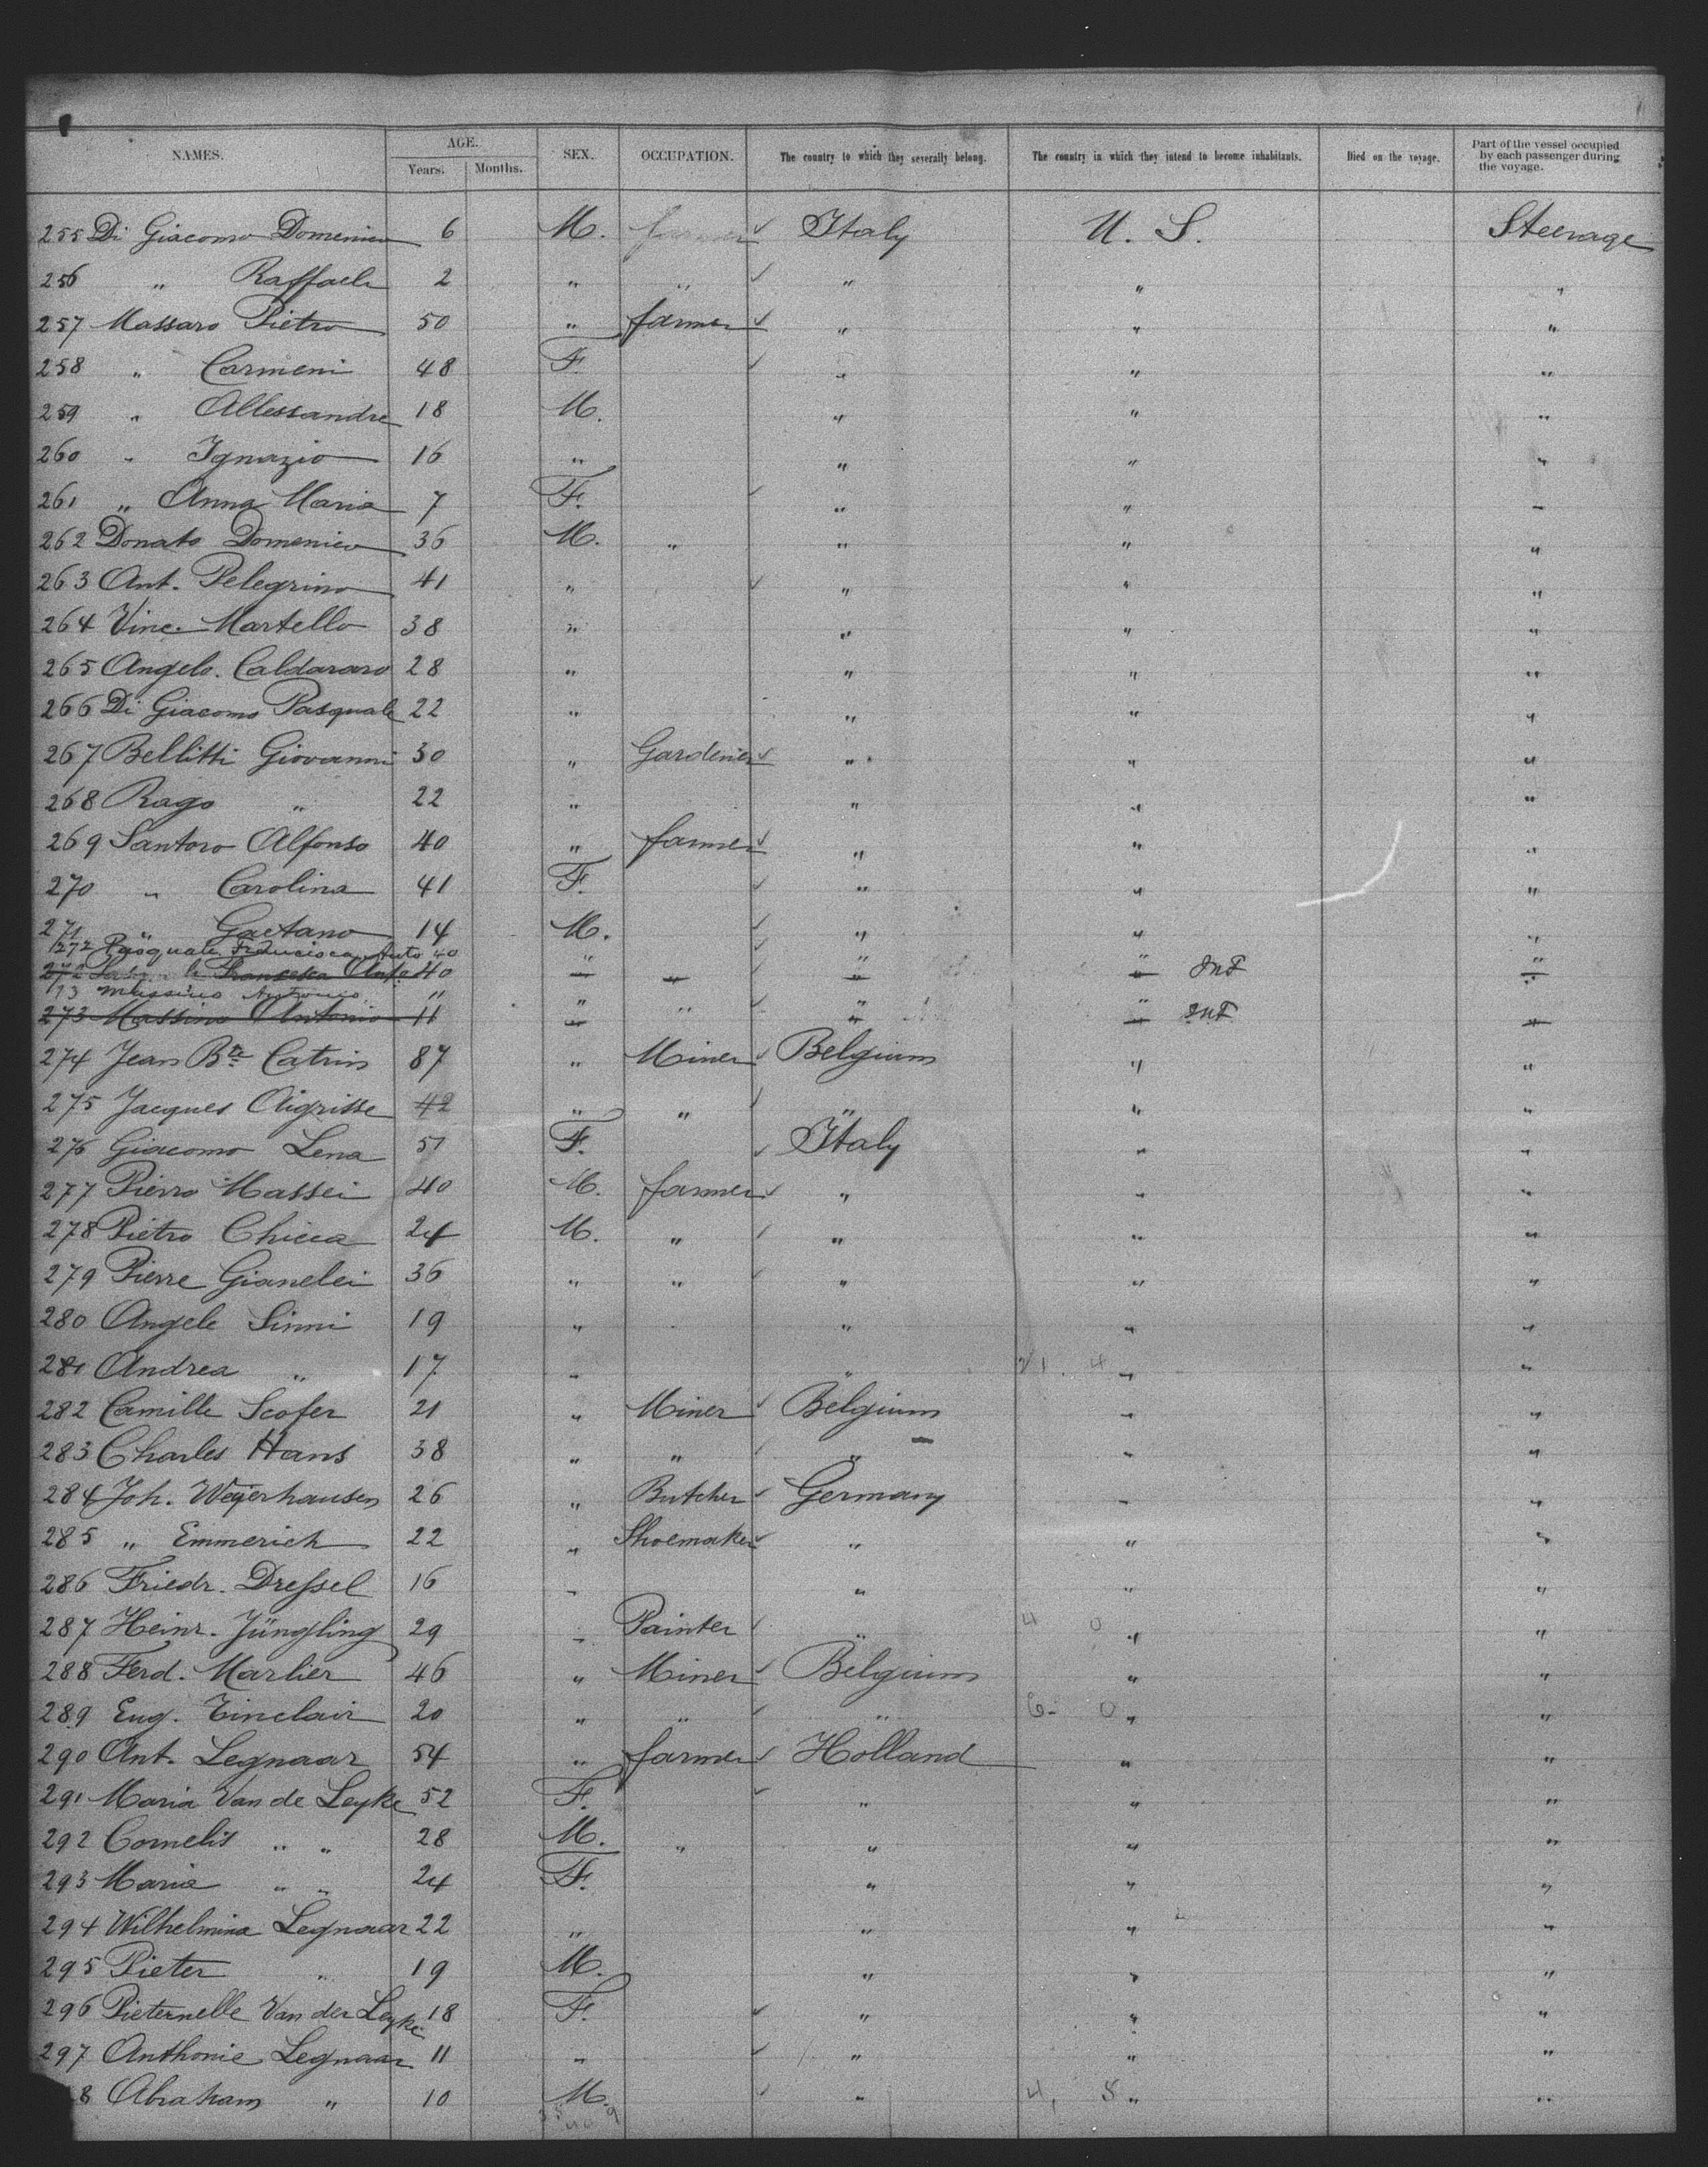 NAMES. AGE. Years. Months. SEX. OCCUPATION. The country to which they severally belong. The country in which they intend to become inhabitants. Died on the voyage. Part of the vessel occupied by each passenger during the voyage.
255 Di Giacomo Domenico 6 M. farmer Italy U. S. Steerage
256 " Raffaele 2 " " " " "
257 Massaro Pietro 50 " farmer " " "
258 " Carmeni 48 F. " " "
259 " Allessandre 18 M. " " "
260 " Ignazio 16 " " " "
261 " Anna Maria 7 F. " " "
262 Donato Domenico 36 M. " " " "
263 Ant. Pelegrino 41 " " " "
264 Vinc. Martello 38 " " " "
265 Angelo. Caldararo 28 " " " "
266 Di Giacomo Pasquale 22 " " " "
267 Bellitti Giovanni 30 " Gardener " " "
268 Rago " 22 " " " "
269 Santoro Alfonso 40 " farmer " " "
270 " Carolina 41 F. " " "
271 " Gaetano 14 M. " " "
272 Pasquale Anto 40 " " " "
272 Francesca Anto 40 " " " "
73 Massino Antonio " " " " "
273 Massino Antonio 11 " " " "
274 Jean Bte Catrin 87 " Miner Belgium " "
275 Jacques Aigrisse 42 " " " " "
276 Giacomo Lena 51 F. Italy " "
277 Pierro Massei 40 M. farmer " " "
278 Pietro Chicca 24 M. " " " "
279 Pierre Gianelei 36 " " " " "
280 Angele Sinni 19 " " " "
281 Andrea " 17 " " " "
282 Camille Scofer 21 " Miner Belgium " "
283 Charles Hans 38 " " " " "
284 Joh. Weyerhausen 26 " Butcher Germany " "
285 " Emmerich 22 " Shoemaker " " "
286 Friedr. Dreſsel 16 " " " "
287 Heinr. Jüngling 29 " Painter " 4 0 " "
288 Ferd. Marlier 46 " Miner Belgium " "
289 Eug. Tinclair 20 " " " 6- 0 " "
290 Ant. Legnaar 54 " farmer Holland " "
291 Maria Van de Leyke 52 F. " " "
292 Cornelis " " 28 M. " " " "
293 Maria " " 24 F. " " "
294 Wilhelmina Legnaar 22 " " " "
295 Pieter " 19 M. " " "
296 Pieternelle Van der Leyke 18 F. " " "
297 Anthonie Legnaar 11 " " " "
8 Abraham " 10 M. " 4, 8 " "